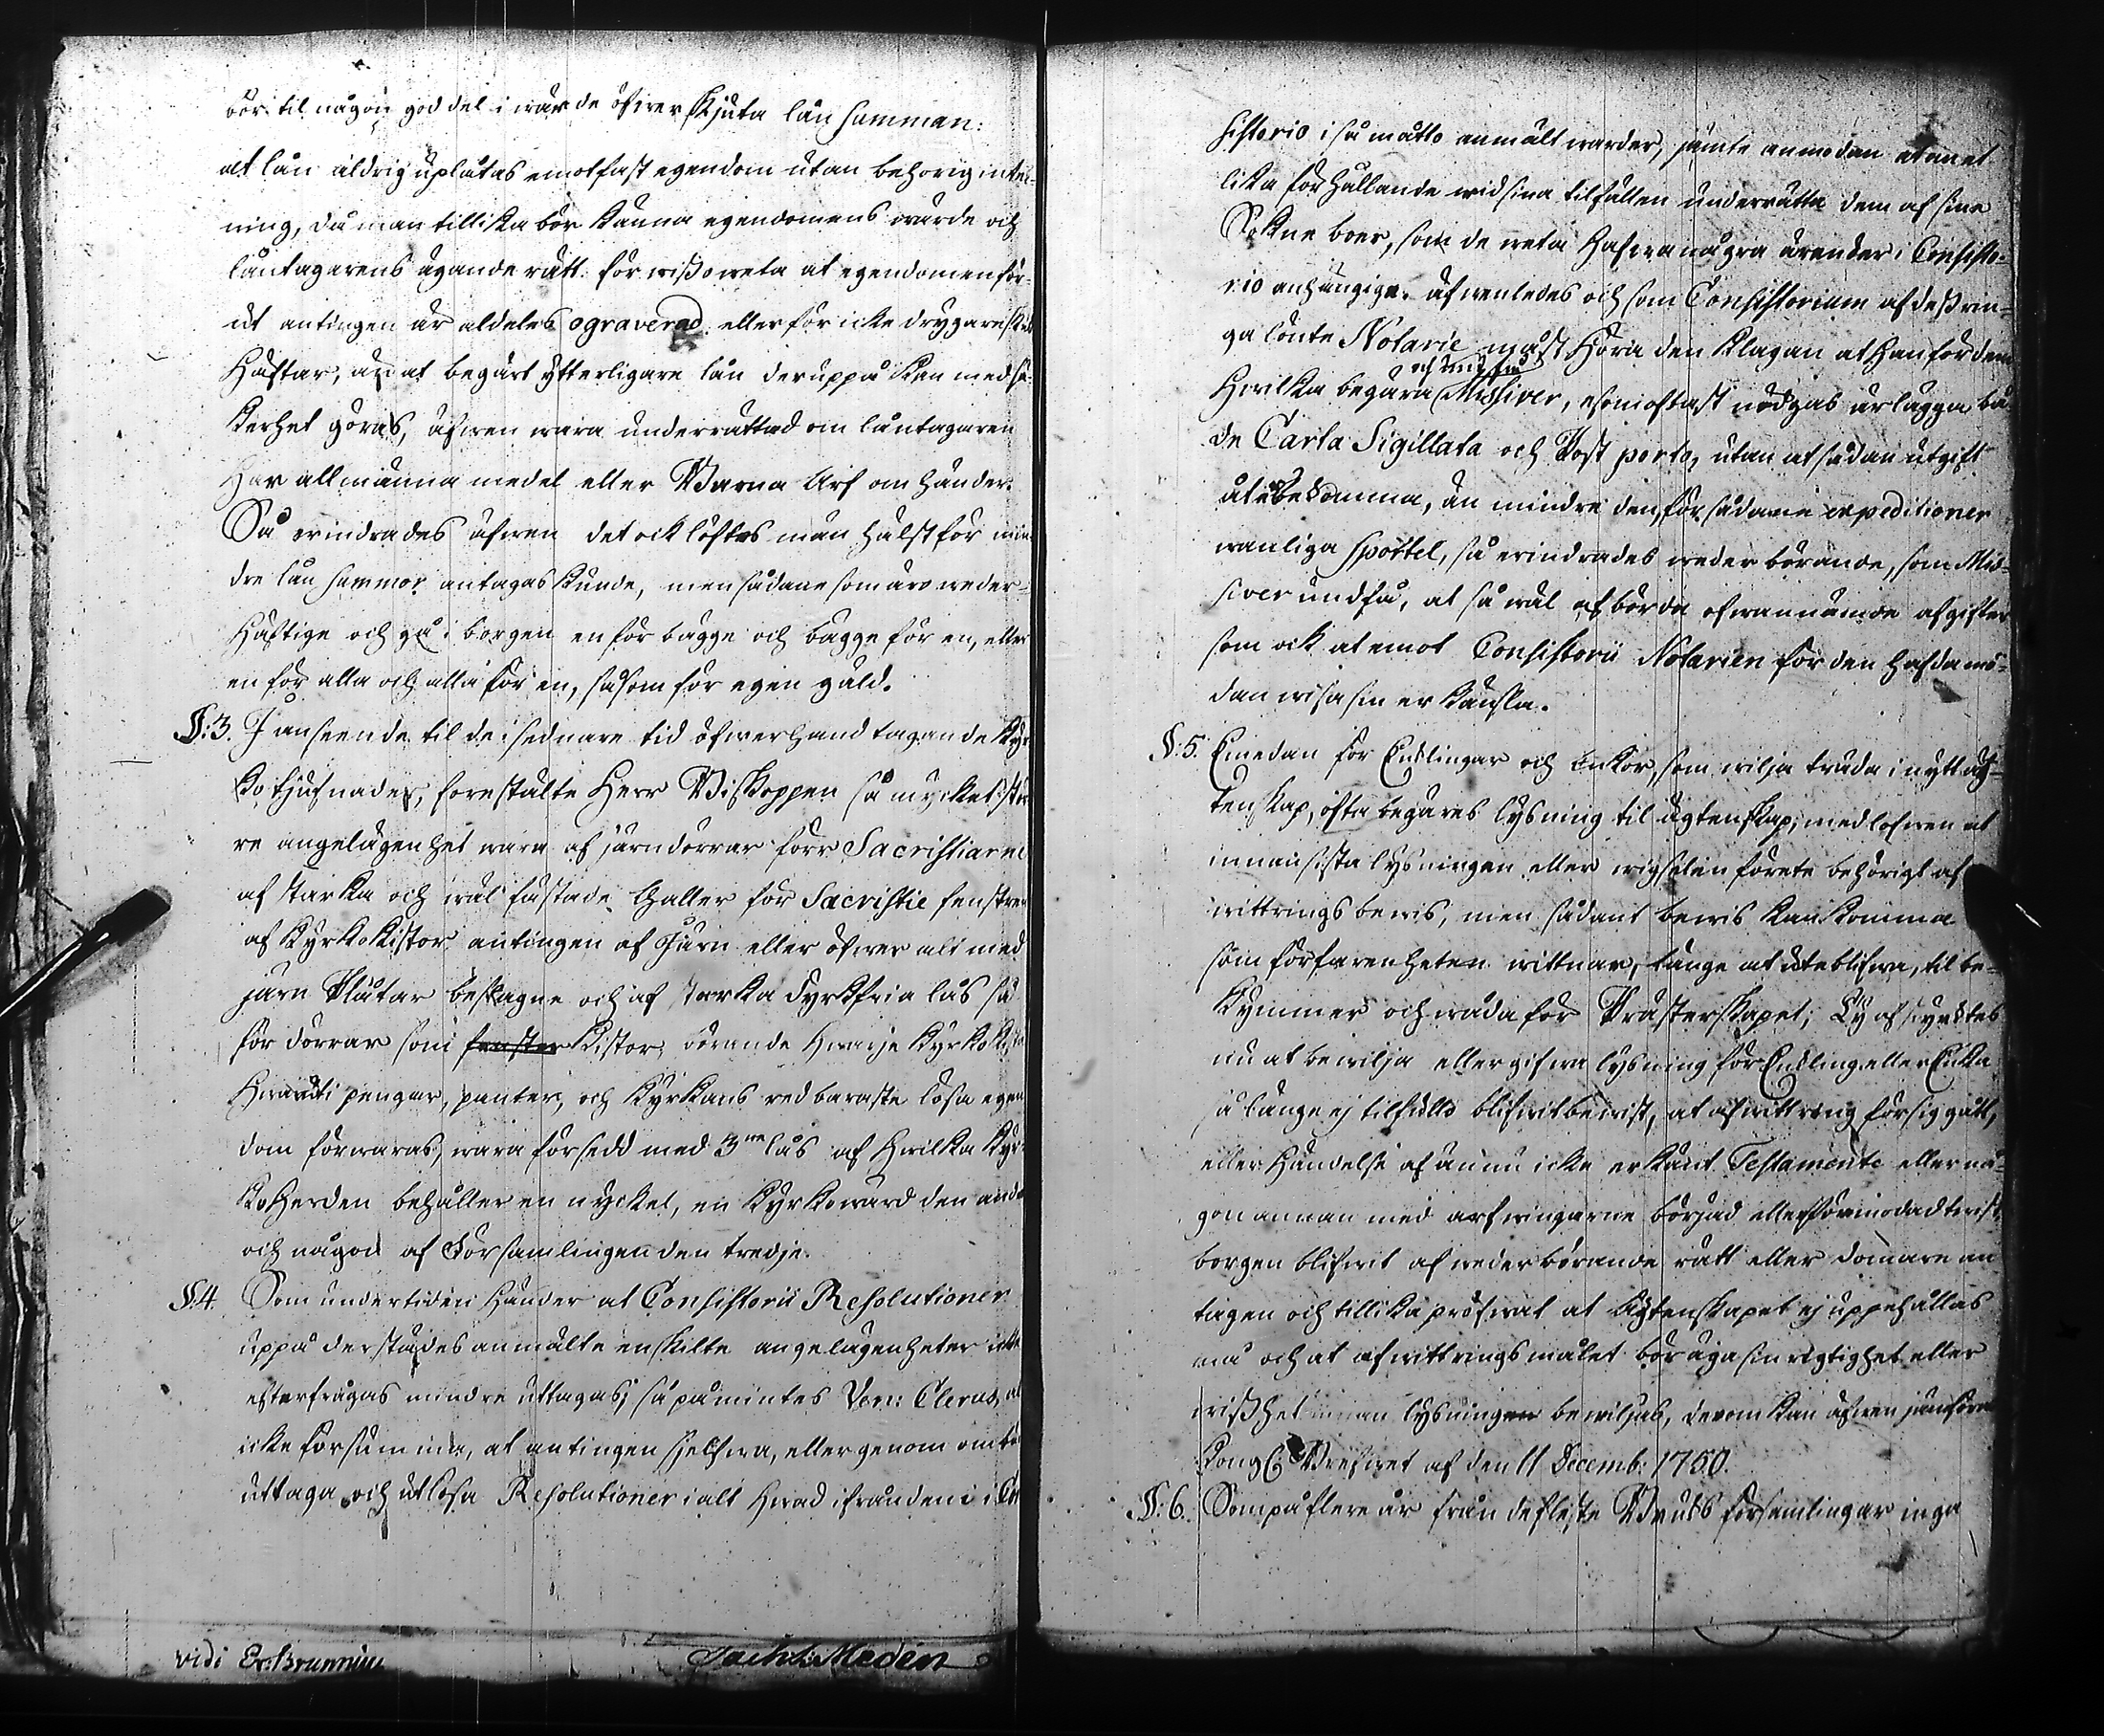 bör til någon god del i wärde öfwer skjuta lån summan:
at lån aldrig uplåtas emot fast egendom utan behörig inteck-
ning, då man tillika bör känna egendomens wärde och
låntagarens ägande rätt, för wisso weta at egendomen för-
ut antingen är aldeles ograverad eller för icke drygare skuld
häftar, än at begärt ytterligare lån deruppå kan med sä-
kerhet göras, äfwen wara underrättad om låntagaren
har allmänna medel eller Barna Arf om händer.
Så erindrades äfwen det ock löftes män hälst för min-
dre lån summor antagas kunde, men sådane som äro weder-
häftige och gå i borgen en för bägge och bägge för en, eller
en för alla och alla för en, såsom för egen gäld.
§:3. I anseende til de i sednare tid öfwerhand tagande Kyr-
ko tjufnader, förestälte Herr Biskoppen så mycket stör-
re angelägenhet wara af järndörrar förr Sacristiarne
af starka och wäl fästade Galler för Sacristie fenstren
af Kyrkokistor antingen af Järn eller öfwer alt med
järn Plåtar beslagne och af starka dyrkfria lås så
för dörrar som fenster kistor, börande hwarje Kyrkokista
hwaruti pengar, panter, och Kyrkans redbaraste lösa egen
dom förwaras, wara försedd med 3ne lås af hwilka Kyr-
koherden behåller en nyckel, en Kyrkoward den andra
och någon af Församlingen den tredje.
§.4. Som undertiden händer at Consistorii Resolutioner
uppå derstädes anmälte enskilte angelägenheter intet
efterfrågas mindre uttagas; så påmintes Ven: Clerus, at
icke försumma, at antingen sjelfwa, eller genom ombud
uttaga och utlösa Resolutioner i alt hwad ifrån dem i Con
vidi Er: Brunnius
Joch: Medén
sistorio i så måtto anmält warder, jämte anmodan at ...
lika förhållande wid sina tilfällen underrätta dem af sine
Sokne boer, som de weta hafwa några ärender i Consisto-
rio anhängige. Äfwenledes och som Consistorium af deß rin-
ga lönte Notarie måst höra den klagan at han för dem
och undfå
hwilka begära Missiver, esomoftast nödgas ärlägga bå-
de Carta Sigillata och Post porto, utan at sådan utgift
återbekomma, än mindre den för sådane expeditioner
wanliga sportel, så erindrades weder börande, som Mis-
siver undfå, at så wäl afbörda ofwannämde afgifter
som ock at emot Consistorii Notarien för den hafda mö-
dan wisa sin erkänsla.
§:5. Emedan för Enklingar och Enkor, som wilja träda i nytt äg-
tenskap, ofta begäres lysning til ägtenskap, med löfwen at
innan sista lysningen eller wigselen förete behörigt af
wittrings bewis, men sådant bewis kan komma
som förfarenheten wittnar, länge at uteblifwa, til be-
kymmer och wåda för Prästerskapet; Ty afsyrktes
nu at bewilja eller gifwa lysning för Enkling eller Enka
så länge ej tilfullo blifwit bewist, at afwittring försiggått,
eller händelse af ännu icke erkänt Testamente eller nå-
gon annan med arfwingarne börjad eller förmodad twist
borgen blifwit af wederbörande rätt eller domare an
tagen och tillika pröfwat at Ägtenskapet ej uppehållas
må och at afwittringsmålet bör äga sin rigtighet eller
wißhet innan lysningen bewiljas, derom kan äfwen jämföras
Kongl: Brefwet af den 11 Decemb: 1750.
§.6. Som på flere år från de fleste Bruks församlingar inga